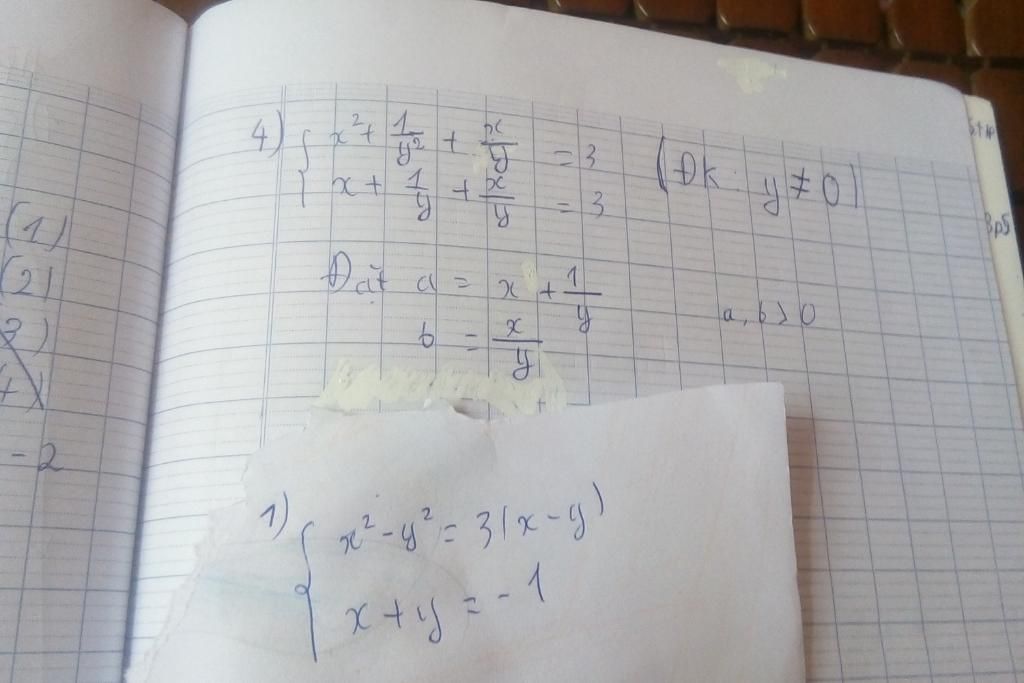 (1)
(2)
3)
4)
-2
4) { x² + 1/y² + x/y = 3
x + 1/y + x/y = 3
(Đk: y ≠ 0)
Đặt a = x + 1/y
b = x/y
a, b > 0
1) { x² - y² = 3(x - y)
x + y = -1